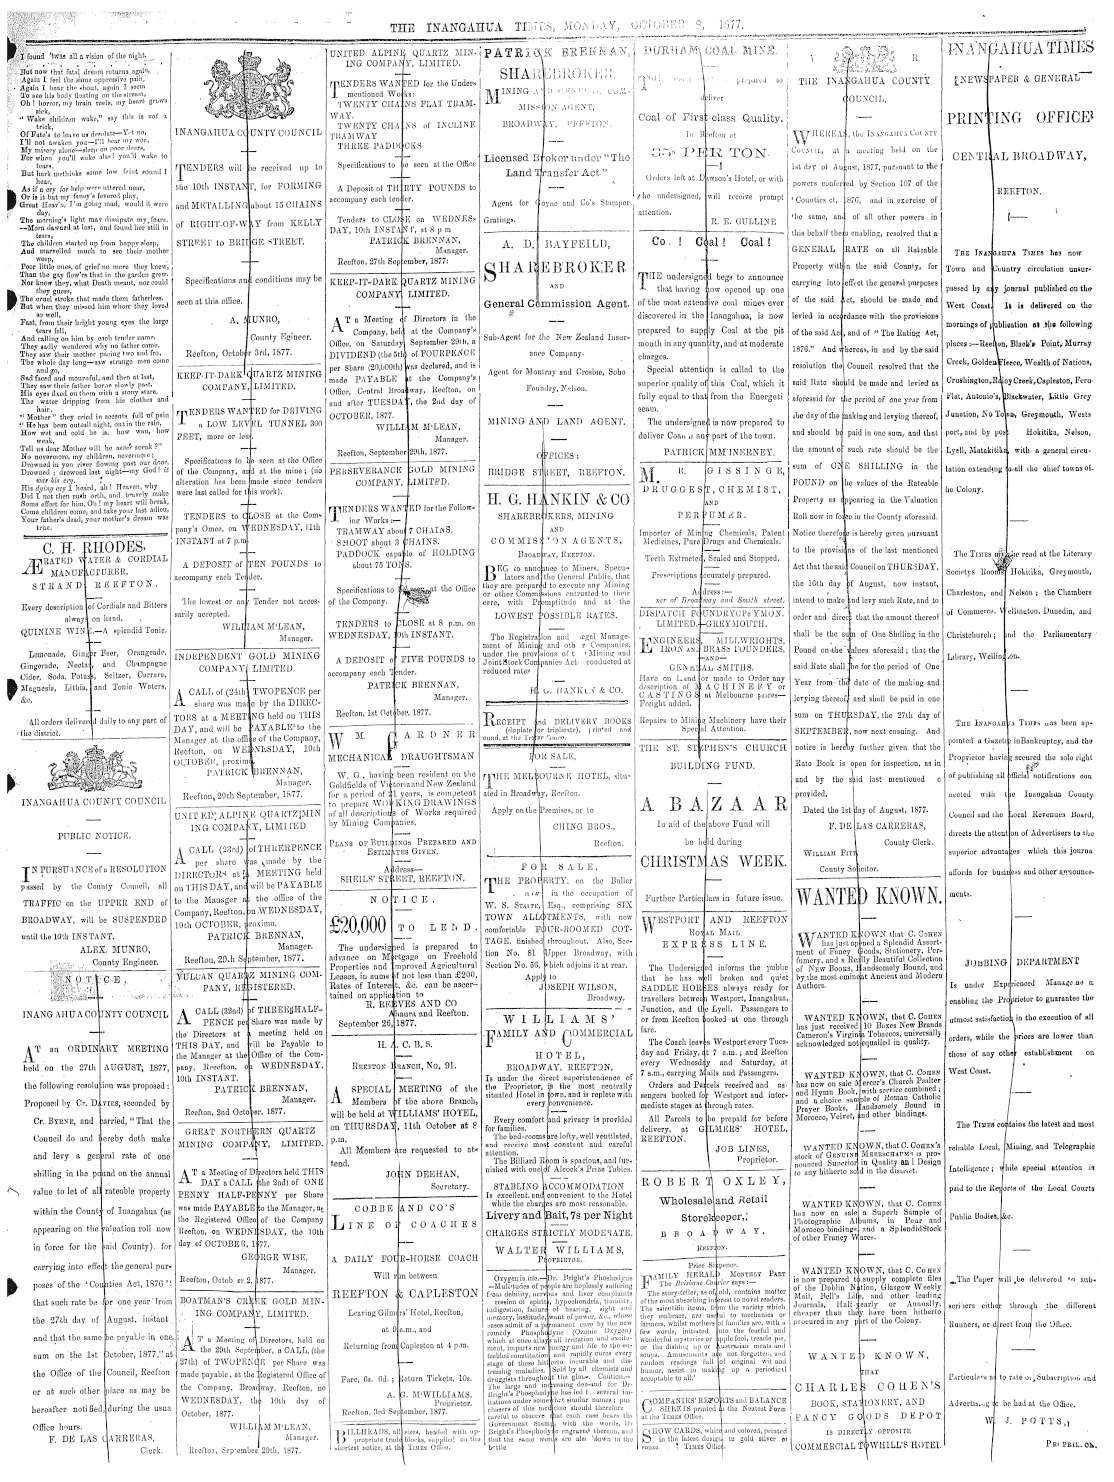 THE INANGAHUA TIMES, MONDAY, OCTOBER 8, 1877.
I found 'twas all a vision of the night.
But now that fatal dream returns again
Again I feel the same oppressive pain,
Again I hear the shout, again I seem
To see his body floating on the stream,
Oh! horror, my brain reels, my heart grows
sick,
"Wake children wake," say this is not a
trick,
Of Fate's to leave us desolate—Yet no,
I'll not awaken you—I'll bear my woe,
My misery alone—sleep on poor dears,
For when you'll wake alas! you'll wake to
tears.
But hark methinks some low faint sound I
hear,
As if a cry for help were uttered near,
Or is it but my fancy's fevered play,
Great Heav'n, I'm going mad, would it were
day,
The morning's light may dissipate my fears.
—Morn dawned at last, and found her still in
tears,
The children started up from happy sleep,
And marvelled much to see their mother
weep,
Poor little ones, of grief no more they knew,
Than the gay flow'rs that in the garden grew.
Nor knew they, what Death meant, nor could
they guess,
The cruel stroke that made them fatherless.
But when they missed him whom they loved
so well,
Fast, from their bright young eyes the large
tears fell,
And calling on him by each tender name.
They sadly wondered why no father came.
They saw their father pacing two and fro,
The whole day long—saw strange men come
and go,
Sad faced and mournful, and then at last,
They saw their father borne slowly past,
His eyes fixed on them with a stony stare,
The water dripping from his clothes and
hair.
"Mother" they cried in accents full of pain
"He has been out all night, out in the rain,
How wet and cold he is. how wan, how
weak,
Tell us dear Mother will he never speak?"
No nevermore, my children, nevermore;
Drowned in yon river flowing past our door.
Drowned; drowned last night—my God! it
was his cry.
His dying cry I heard, ah! Heaven, why
Did I not then rush forth, and bravely make
Some effort for him, Oh! my heart will break,
Come children come, and take your last adieu,
Your father's dead, your mother's dream was
true.
C. H. RHODES,
ÆRATED WATER & CORDIAL
MANUFACTURER,
STRAND REEFTON.
Every description of Cordials and Bitters
always on hand.
QUININE WINE—A splendid Tonic.
Lemonade, Ginger Peer, Orangeade,
Gingerade, Nectar, and Champagne
Cider, Soda, Potass, Seltzer, Carrara,
Magnesia, Lithia, and Tonic Waters,
&c.
All orders delivered daily to any part of
the district.
INANGAHUA COUNTY COUNCIL
PUBLIC NOTICE.
IN PURSUANCE of a RESOLUTION
passed by the County Council, all
TRAFFIC on the UPPER END of
BROADWAY, will be SUSPENDED
until the 10th INSTANT.
ALEX. MUNRO,
County Engineer.
NOTICE,
INANGAHUA COUNTY COUNCIL
AT an ORDINARY MEETING
held on the 27th AUGUST, 1877,
the following resolution was proposed:
Proposed by Cr. DAVIES, seconded by
Cr. BYRNE, and carried, "That the
Council do and hereby doth make
and levy a general rate of one
shilling in the pound on the annual
value to let of all rateable property
within the County of Inangahua (as
appearing on the valuation roll now
in force for the said County). for
carrying into effect the general pur-
poses of the 'Counties Act, 1876':
that such rate be for one year from
the 27th day of August, instant
and that the same be payable in one
sum on the 1st October, 1877," at
the Office of the Council, Reefton
or at such other place as may be
hereafter notified, during the usual
Office hours.
F. DE LAS CARRERAS,
Clerk.
INANGAHUA COUNTY COUNCIL
TENDERS will be received up to
the 10th INSTANT, for FORMING
and METALLING about 15 CHAINS
of RIGHT-OF-WAY from KELLY
STREET to BRIDGE STREET.
Specifications and conditions may be
seen at this office.
A. MUNRO,
County Egineer.
Reefton, October 3rd, 1877.
KEEP-IT-DARK QUARTZ MINING
COMPANY, LIMITED.
TENDERS WANTED for DRIVING
a LOW LEVEL TUNNEL 300
FEET, more or less.
Specifications to be seen at the Office
of the Company, and at the mine; (no
alteration has been made since tenders
were last called for this work).
TENDERS to CLOSE at the Com-
pany's Office, on WEDNESDAY, 11th
INSTANT at 7 p.m.
A DEPOSIT of TEN POUNDS to
accompany each Tender.
The lowest or any Tender not neces-
sarily accepted.
WILLIAM M'LEAN,
Manager.
INDEPENDENT GOLD MINING
COMPANY, LIMITED.
A CALL of (24th) TWOPENCE per
share was made by the DIREC-
TORS at a MEETING held on THIS
DAY, and will be PAYABLE to the
Manager at the office of the Company,
Reefton, on WEDNESDAY, 10th
OCTOBER, proximo.
PATRICK BRENNAN,
Manager.
Reefton, 29th September, 1877.
UNITED ALPINE QUARTZ MIN-
ING COMPANY, LIMITED
A CALL (23rd) of THREEPENCE
per share was made by the
DIRECTORS at a MEETING held
on THIS DAY, and will be PAYABLE
to the Manager at the office of the
Company, Reefton, on WEDNESDAY,
10th OCTOBER, proximo.
PATRICK BRENNAN,
Manager.
Reefton, 29.th September, 1877.
VULCAN QUARTZ MINING COM-
PANY, REGISTERED.
A CALL (32nd) of THREEHALF-
PENCE per Share was made by
the Directors at a meeting held on
THIS DAY, and will be Payable to
the Manager at the Office of the Com-
pany, Reefton, on WEDNESDAY,
10th INSTANT.
PATRICK BRENNAN,
Manager.
Reefton, 2nd October, 1877.
GREAT NORTHERN QUARTZ
MINING COMPANY, LIMITED.
AT a Meeting of Directors held THIS
DAY a CALL (the 2nd) of ONE
PENNY HALF-PENNY per Share
was made PAYABLE to the Manager, at
the Registered Office of the Company
Reefton, on WEDNESDAY, the 10th
day of OCTOBER, 1877.
GEORGE WISE,
Manager.
Reefton, October 2, 1877.
BOATMAN'S CREEK GOLD MIN-
ING COMPANY, LIMITED.
AT a Meeting of Directors, held on
the 29th September, a CALL, (the
27th) of TWOPENCE per Share was
made payable, at the Registered Office of
the Company, Broadway, Reefton, no
WEDNESDAY, the 10th day of
October, 1877.
WILLIAM M'LEAN,
Manager.
Reefton, September 29th, 1877.
UNITED ALPINE QUARTZ MIN-
ING COMPANY, LIMITED.
TENDERS WANTED for the Under-
mentioned Works:
TWENTY CHAINS FLAT TRAM-
WAY.
TWENTY CHAINS of INCLINE
TRAMWAY
THREE PADDOCKS
Specifications to be seen at the Office
A Deposit of THIRTY POUNDS to
accompany each tender.
Tenders to CLOSE on WEDNES-
DAY, 10th INSTANT, at 8 p m
PATRICK BRENNAN,
Manager.
Reefton, 27th September, 1877:
KEEP-IT-DARK QUARTZ MINING
COMPANY, LIMITED.
AT a Meeting of Directors in the
Company, held at the Company's
Office, on Saturday September 29th, a
DIVIDEND (the 5th) of FOURPENCE
per Share (20,000th) was declared, and is
made PAYABLE at the Company's
Office, Central Broadway, Reefton, on
and after TUESDAY, the 2nd day of
OCTOBER, 1877.
WILLIAM M'LEAN,
Manager,
Reefton, September 29th, 1877.
PERSEVERANCE GOLD MINING
COMPANY, LIMITED.
TENDERS WANTED for the Follow-
ing Works:—
TRAMWAY about 7 CHAINS.
SHOOT about 3 CHAINS.
PADDOCK capable of HOLDING
about 75 TONS.
Specifications to at the Office
of the Company.
TENDERS to CLOSE at 8 p.m. on
WEDNESDAY, 10th INSTANT.
A DEPOSIT of FIVE POUNDS to
accompany each Tender.
PATRICK BRENNAN,
Manager.
Reefton, 1st October, 1877.
WM. GARDNER
MECHANICAL DRAUGHTSMAN
W. G., having been resident on the
Goldfields of Victoria and New Zealand
for a period of 21 years, is competent
to prepare WORKING DRAWINGS
of all descriptions of Works required
by Mining Companies.
PLANS OF BUILDINGS PREPARED AND
ESTIMATES GIVEN.
Address—
SHEILS' STREET, REEFTON.
NOTICE.
£20,000 TO LEND.
The undersigned is prepared to
advance on Mortgage on Freehold
Properties and Improved Agricultural
Leases, in sums of not less than £200.
Rates of Interest, &c. can be ascer-
tained on application to
R. REEVES AND CO
Ahaura and Reefton.
September 26, 1877.
H. A. C. B. S.
REEFTON BRANCH, No. 91.
A SPECIAL MEETING of the
Members of the above Branch,
will be held at WILLIAMS' HOTEL,
on THURSDAY, 11th October at 8
p.m,
All Members are requested to at-
tend.
JOHN DEEHAN,
Secretary.
COBBE AND CO'S
LINE OF COACHES
A DAILY FOUR-HORSE COACH
Will run between
REEFTON & CAPLESTON
Leaving Gilmers' Hotel, Reefton,
at 9 a.m., and
Returning from Capleston at 4 p.m.
Fare, 6s. 6d; Return Tickets, 10s.
A. G. M'WILLIAMS.
Proprietor.
Reefton, 3rd September, 1877.
BILLHEADS, all sizes, headed with ap-
propriate trade blocks, supplied on the
shortest notice, at the TIMES OFFICE.
PATRICK BRENNAN,
SHAREBROKER,
MINING AND GENERAL COM-
MISSION AGENT,
BROADWAY, REEFTON.
Licensed Broker under "The
Land Transfer Act."
Agent for Goyne and Co's Stamper
Gratings.
A. D. BAYFEILD,
SHAREBROKER
AND
General Commission Agent.
Sub-Agent for the New Zealand Insur-
ance Company.
Agent for Montray and Crosbee, Soho
Foundry, Nelson.
MINING AND LAND AGENT.
OFFICES:
BRIDGE STREET, REEFTON.
H. G. HANKIN & CO
SHAREBROKERS, MINING
AND
COMMISSION AGENTS,
BROADWAY, REEFTON.
BEG to announce to Miners, Specu-
lators and the General Public, that
they are prepared to execute any Mining
or other Commissions entrusted to their
care, with Promptitude and at the
LOWEST POSSIBLE RATES.
The Registration and Legal Manage-
ment of Mining and other Companies,
under the provisions of the Mining and
Joint Stock Companies Act conducted at
reduced rates
H. G. HANKIN & CO.
RECEIPT and DELIVERY BOOKS
(duplate or triplicate), printed and
ound, at the
FOR SALE,
THE MELBOURNE HOTEL, situ-
ated in Broadway, Reefton.
Apply on the Premises, or to
CHING BROS.,
Reefton.
FOR SALE,
THE PROPERTY, on the Buller
now in the occupation of
W. S. STAITE, Esq., comprising SIX
TOWN ALLOTMENTS, with new
comfortable FOUR-ROOMED COT-
TAGE. finished throughout. Also, Sec-
tion No. 81 Upper Broadway, with
Section No. 56, which adjoins it at rear.
Apply to
JOSEPH WILSON,
Broadway.
WILLIAMS'
FAMILY AND COMMERCIAL
HOTEL,
BROADWAY, REEFTON.
Is under the direct superintendence of
the Proprietor, is the most centrally
situated Hotel in town, and is replete with
every convenience.
Every comfort and privacy is provided
for families.
The bed-rooms are lofty, well ventilated,
and receive most constant and careful
attention.
The Billiard Room is spacious, and fur-
nished with one of Alcock's Prize Tables.
STABLING ACCOMMODATION
Is excellent, and convenient to the Hotel
while the charges are most reasonable.
Livery and Bait, 7s per Night
CHARGES STRICTLY MODERATE.
WALTER WILLIAMS,
PROPRIETOR.
Oxygen is life.—Dr. Bright's Phosphodyne
—Multitudes of people are hoplessly suffering
from debility, nervous and liver complaints
DURHAM COAL MINE.
deliver
Coal of First-class Quality.
In Reefton at
35s PER TON.
Orders left at Dawson's Hotel, or with
the undersigned, will receive prompt
attention.
R. E. GULLINE
Co.! Coal! Coal!
THE undersigned begs to announce
that having now opened up one
of the most extensive coal mines ever
discovered in the Inangahua, is now
prepared to supply Coal at the pit
mouth in any quantity, and at moderate
charges.
Special attention is called to the
superior quality of this Coal, which it
fully equal to that from the Energeti
seam.
The undersigned is now prepared to
deliver Coal in any part of the town.
PATRICK MM'INERNEY.
M. R. GISSINGE,
DRUGGEST, CHEMIST,
AND
PERFUMAR.
Importer of Mining Chemicals, Patent
Medicines, Pure Drugs and Chemicals.
Teeth Extracted, Scaled and Stopped.
Prescriptions accurately prepared.
Address:—
ner of Broadway and Smith street.
DISPATCH FOUNDRY COMPANY.
LIMITED.—GREYMOUTH.
ENGINEERS, MILLWRIGHTS,
IRON and BRASS FOUNDERS,
—AND—
GENERAL SMITHS.
Have on Land or made to Order any
description of MACHINERY or
CASTINGS at Melbourne prices—
Freight added.
Repairs to Mining Machinery have their
Special Attention.
THE ST. STEPHEN'S CHURCH
BUILDING FUND.
A BAZAAR
In aid of the above Fund will
be held during
CHRISTMAS WEEK.
Further Particulars in future issue.
WESTPORT AND REEFTON
ROYAL MAIL
EXPRESS LINE.
The Undersigned informs the public
that he has well broken and quiet
SADDLE HORSES always ready for
travellers between Westport, Inangahua,
Junction, and the Lyell. Passengers to
or from Reefton booked at one through
fare.
The Coach leaves Westport every Tues-
day and Friday, at 7 a.m.; and Reefton
every Wednesday and Saturday, at
7 a.m., carrying Mails and Passengers.
Orders and Parcels received and as-
sengers booked for Westport and inter-
mediate stages at through rates.
All Parcels to be prepaid for before
delivery, at GILMERS' HOTEL,
REEFTON.
JOB LINES,
Proprietor.
ROBERT OXLEY,
Wholesale and Retail
Storekeeper,
BROADWAY,
REEFTON.
Price Sixpence.
FAMILY HERALD MONTHLY PART
The Brisbane Courier says:—
The story-teller, as of old, contains matter
of the most absorbing interest to novel readers.
COMPANIES' REPORTS and BALANCE
SHEETS printed in the Neatest Form
at the TIMES Office.
SHOW CARDS, white and colored, printed
in the latest designs to gold silver or
TIMES Office.
V R.
THE INANGAHUA COUNTY
COUNCIL.
WHEREAS, the INANGAHUA COUNTY
COUNCIL, at a meeting held on the
1st day of August, 1877, pursuant to the
powers conferred by Section 107 of the
'Counties ct, 1876, and in exercise of
the same, and of all other powers in
this behalf them enabling, resolved that a
GENERAL RATE on all Rateable
Property within the said County, for
carrying into effect the general purposes
of the said Act, should be made and
levied in accordance with the provisions
of the said Act, and of "The Rating Act,
1876." And whereas, in and by the said
resolution the Council resolved that the
said Rate should be made and levied as
aforesaid for the period of one year from
the day of the making and levying thereof,
and should be paid in one sum, and that
the amount of such rate should be the
sum of ONE SHILLING in the
POUND on the values of the Rateable
Property as appearing in the Valuation
Roll now in force in the County aforesaid.
Notice therefore is hereby given pursuant
to the provisions of the last mentioned
Act that the said Council on THURSDAY,
the 16th day of August, now instant,
intend to make and levy such Rate, and to
order and direct that the amount thereof
shall be the sum of One Shilling in the
Pound on the values aforesaid; that the
said Rate shall be for the period of One
Year from the date of the making and
levying thereof; and shall be paid in one
sum on THURSDAY, the 27th day of
SEPTEMBER, now next ensuing. And
notice is hereby further given that the
Rate Book is open for inspection, as in
and by the said last mentioned c
provided.
Dated the 1st day of August, 1877.
F. DE LAS CARRERAS,
County Clerk.
WILLIAM PITT,
County Solicitor.
WANTED KNOWN.
WANTED KNOWN that C. COHEN
has just opened a Splendid Assort-
ment of Fancy Goods, Stationery, Per-
fumery, and a Really Beautiful Collection
of NEW BOOKS, Handsomely Bound, and
by the most eminent Ancient and Modern
Authors.
WANTED KNOWN, that C. COHEN
has just received 10 Boxes New Brands
Cameron's Virginia Tobaccos, universally
acknowledged not equalled in quality.
WANTED KNOWN, that C. COHEN
has now on sale Mercer's Church Psalter
and Hymn Book, with service combined;
and a choice sample of Roman Catholic
Prayer Books, Handsomely Bound in
Morocco, Velvet, and other bindings.
WANTED KNOWN, that C. COHEN'S
stock of GENUINE MEERSCHAUMS is pro-
nounced Superior in Quality and Design
to any hitherto sold in the district.
WANTED KNOWN, that C. COHEN
has now on sale a Superb Sample of
Photographic Albums, in Pear and
Morocco bindings, and a Splendid Stock
of other Francy Wares.
WANTED KNOWN, that C. COHEN
is now prepared to supply complete files
of the Dublin Nation, Glasgow Weekly
Mail, Bell's Life, and other leading
Journals, Half-yearly or Annually,
cheaper than they have been hitherto
procured in any part of the Colony.
WANTED KNOWN,
THAT
CHARLES COHEN'S
BOOK, STATIONERY, AND
FANCY GOODS DEPOT
IS DIRECTLY OPPOSITE
COMMERCIAL TOWHILL'S HOTEL
INANGAHUA TIMES
NEWSPAPER & GENERAL
PRINTING OFFICE
CENTRAL BROADWAY,
REEFTON.
THE INANGAHUA TIMES has now
Town and Country circulation unsur-
passed by any journal published on the
West Coast. It is delivered on the
mornings of publication at the following
places:—Reefton, Black's Point, Murray
Creek, Golden Fleece, Wealth of Nations,
Crushington, Rainy Creek, Capleston, Fern-
Flat, Antonio's, Blackwater, Little Grey
Junction, No Town, Greymouth, Wests
port, and by post Hokitika, Nelson,
Lyell, Matakitika, with a general circu-
lation extending to all the chief towns of.
he Colony.
The TIMES may be read at the Literary
Societys Room Hokitika, Greymouth,
Charleston, and Nelson; the Chambers
of Commerce. Wellington, Dunedin, and
Christchurch; and the Parliamentary
Library, Wellington.
THE INANGAHUA TIMES has been ap-
pointed a Gazette in Bankruptcy, and the
Proprietor having secured the sole right
of publishing all official notifications con
nected with the Inangahua County
Council and the Local Revenues Board,
directs the attention of Advertisers to the
superior advantages which this journa
affords for business and other announce-
ments.
JOBBING DEPARTMENT
Is under Experienced Managemen
enabling the Proprietor to guarantee the
utmost satisfaction in the execution of all
orders, while the prices are lower than
those of any other establishment on
West Coast.
The TIMES contains the latest and most
reliable Local, Mining, and Telegraphic
Intelligence; while special attention is
paid to the Reports of the Local Courts
Public Bodies, &c.
The Paper will be delivered to sub-
scribers either through the different
Runners, or direct from the Office.
Particulars as to rate of Subscription and
Advertising to be had at the Office.
W. J. POTTS,
PROPRIETOR.